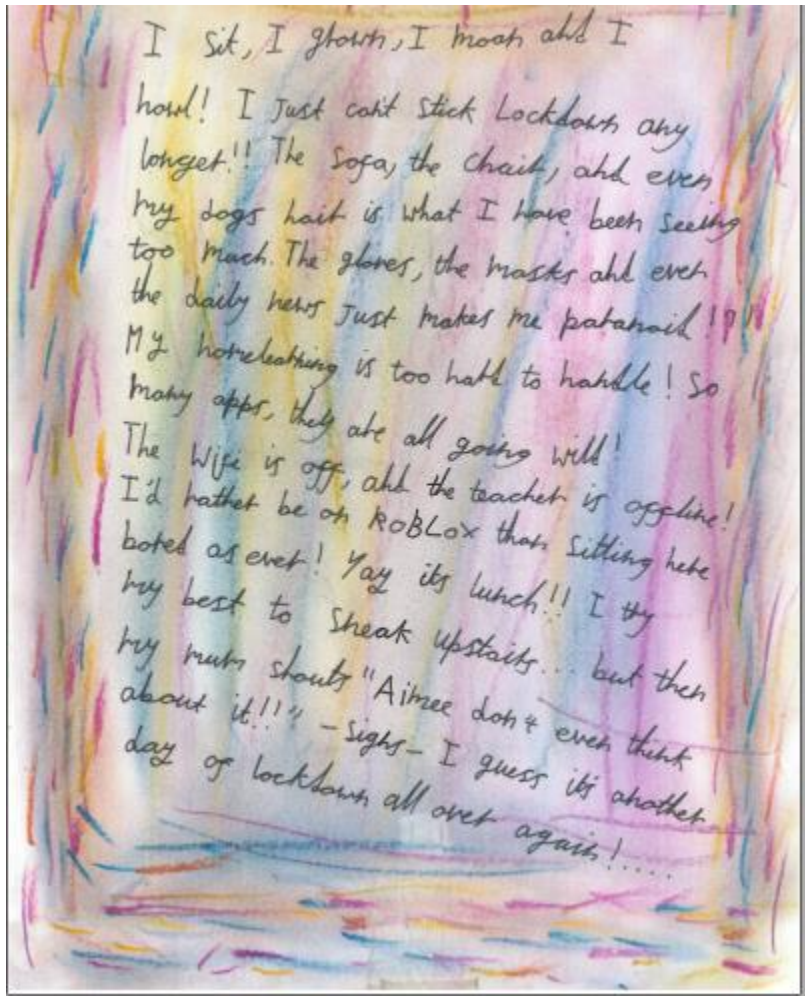 I sit, I grown, I moan and I
howl! I Just can't stick Lockdown any
longer!! The sofa, the chair, and even
my dogs hair is what I have been seeing
too much. The gloves, the masks and even
the daily news Just makes me paranoid!?!!
My homelearning is too hard to handle! So
many apps, they are all going wild!
The Wifi is off, and the teacher is offline!
I'd rather be on ROBLOX than sitting here
bored as ever! Yay its lunch!! I try
my best to sneak upstairs... but then
my mum shouts "Aimee don't even think
about it!!" -Sighs- I guess it's another
day of lockdown all over again!.....